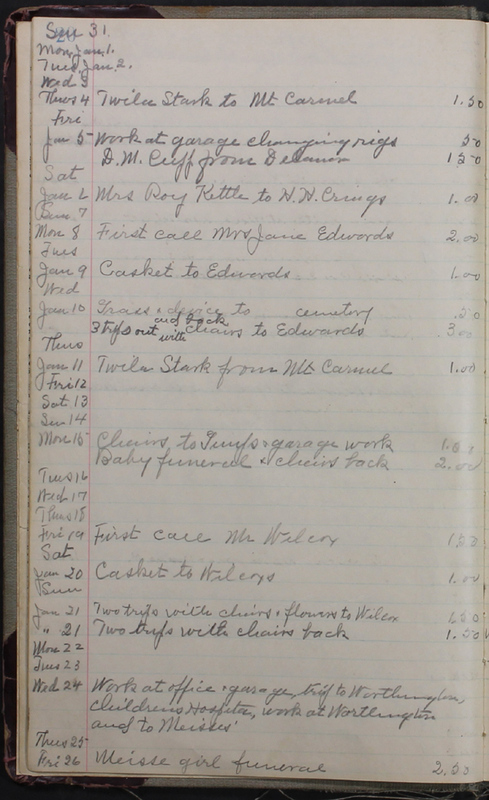 Sun 31.
Mon Jan 1.
Tues Jan 2.
Wed 3
Thurs 4 Twila Stark to Mt Carmel 1.50
Fri
Jan 5 Work at garage changing rigs 50
D.M. Cuff from Delanor 1 50
Sat
Jan 6 Mrs Roy Kettle to H.H. Crings 1.00
Sun. 7
Mon 8 First call Mrs Jane Edwards 2.00
Tues
Jan 9 Casket to Edwards 1.00
Wed
Jan 10 Grass & device to cemetery .50
3 trips out and back with chairs to Edwards 3.00
Thus
Jan 11 Twila Stark from Mt Carmel 1.00
Fri 12
Sat 13
Sun 14
Mon 15 Chairs to & garage work
Baby funeral & chairs back 2.00
Tues 16
Wed 17
Thus 18
Fri 19 First call Mr Wilcox 1.50
Sat
Jan 20 Casket to Wilcoxs 1.00
Sun
Jan 21 Two trips with chairs & flowers to Wilcox 1.50
" 21 Two trips with chairs back 1.50
Mon 22
Tues 23
Wed 24 Work at office & garage, trip to Worthington,
Childrens Hospital, work at Worthington
and to Meisses'
Thus 25
Fri 26 Meisse girl funeral 2.50